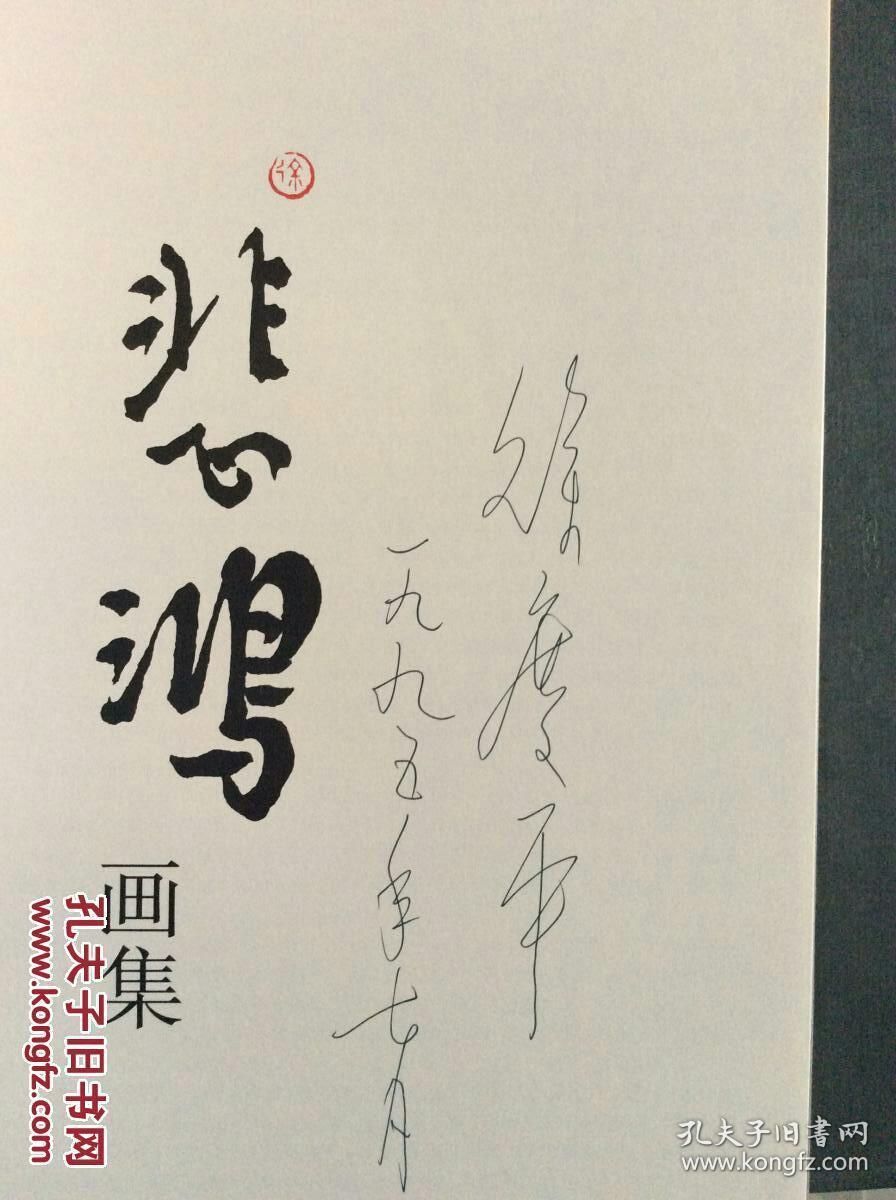 徐
悲鸿
画集
徐庆平
一九九五年七月
孔夫子旧书网
www.kongfz.com
孔夫子旧書网
www.kongfz.com